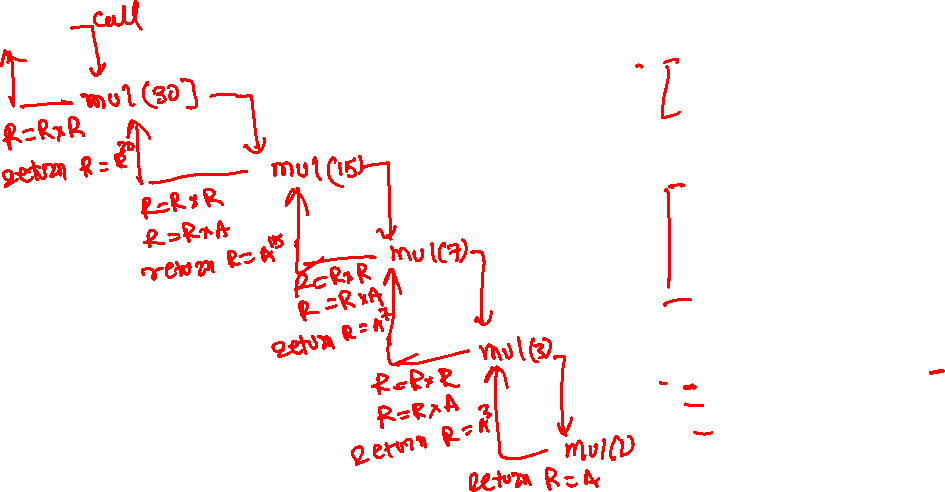 call
mul(30]
R=R×R
return R=R³⁰
mul(15)
R=R×R
R=R×A
return R=A¹⁵
mul(7)
R=R×R
R=R×A
return R=A⁷
mul(3)
R=R×R
R=R×A
return R=A³
mul(1)
return R=A